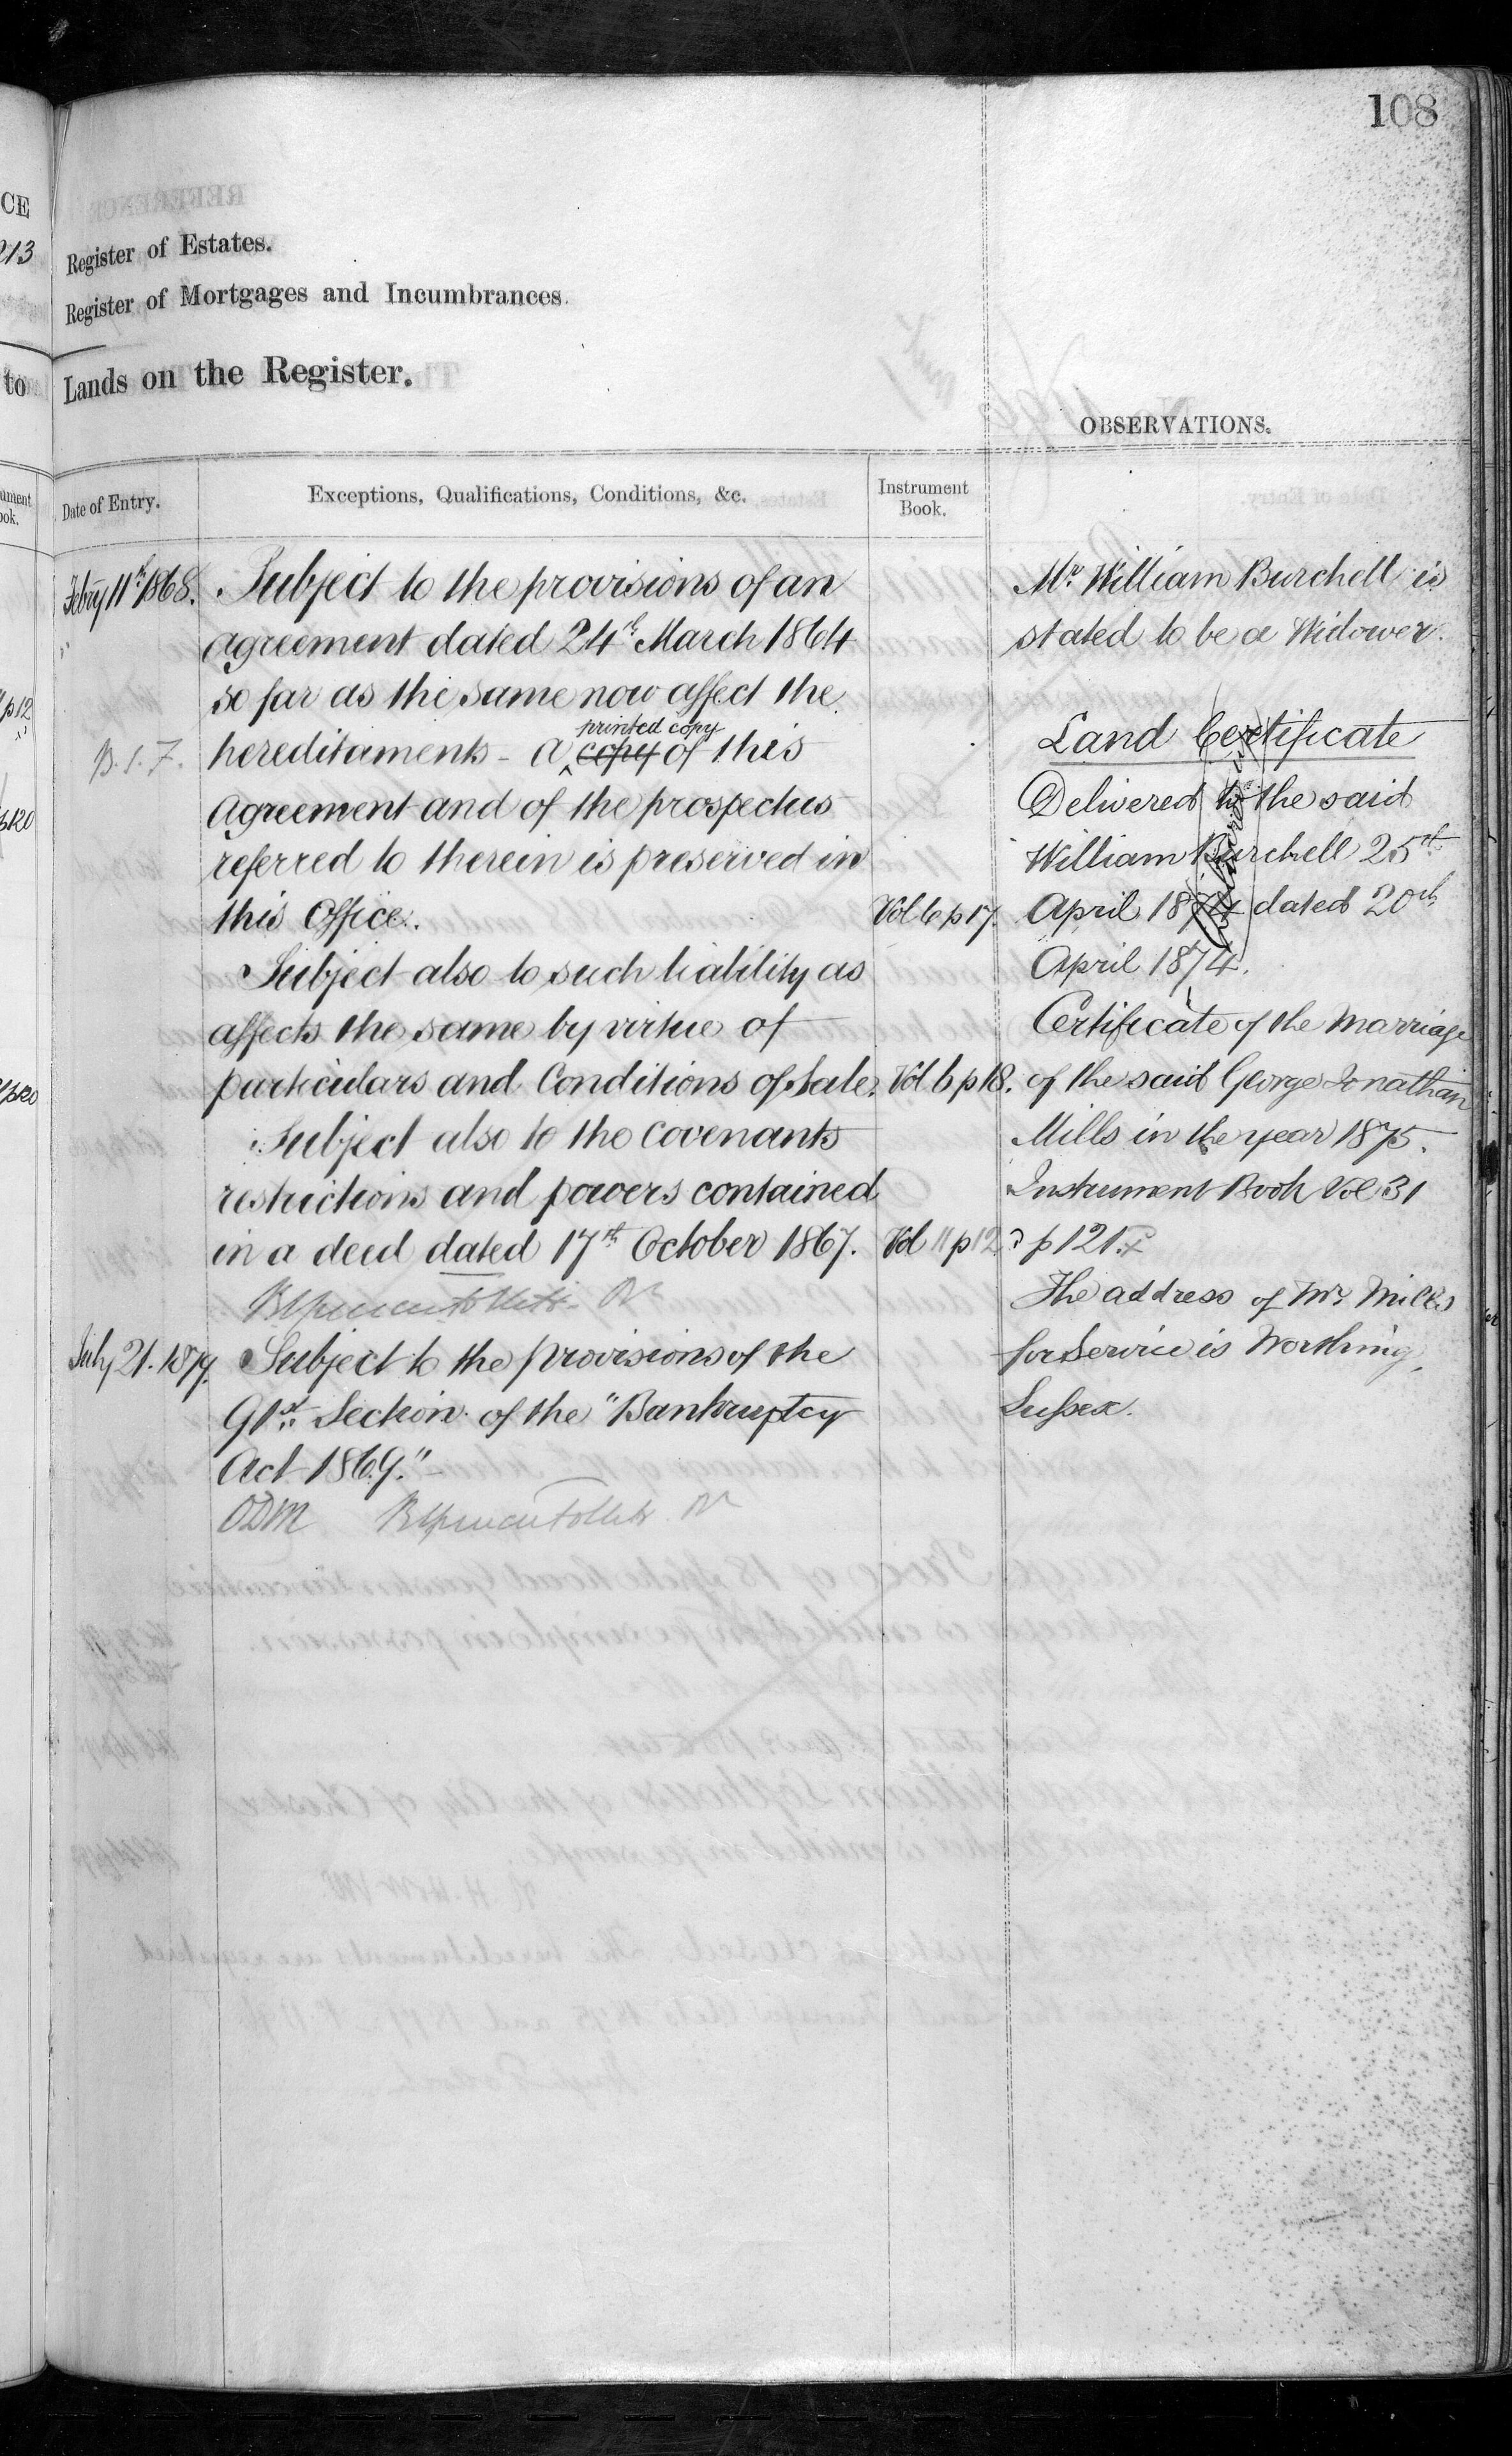 108
Register of Estates.
Register of Mortgages and Incumbrances.
Lands on the Register.
OBSERVATIONS.
Date of Entry.
Exceptions, Qualifications, Conditions, &c.
Instrument
Book.
Febry 11th 1868. Subject to the provisions of an
agreement dated 24th March 1864
so far as the same now affect the
printed copy
hereditaments - a copy of this
Agreement and of the prospectus
referred to therein is preserved in
this Office. Vol 6 p 17.
Subject also to such liability as
affects the same by virtue of
particulars and Conditions of Sale. Vol 6 p 18.
Subject also to the covenants
restrictions and powers contained
in a deed dated 17th October 1867. Vol 11 p 12
July 21. 1879. Subject to the provisions of the
91st Section of the "Bankruptcy
Act 1869."
ODM
Mr. William Burchell is
stated to be a Widower.
Land Certificate
Delivered to the said
William Burchell 25th
April 1874 dated 20th
April 1874.
Certificate of the Marriage
of the said George Jonathan
Mills in the year 1875.
Instrument Book Vol 31
p 121.
The address of Mr. Mills
for Service is Worthing,
Sussex.
CE
213
to
p 12
p 20
p 20